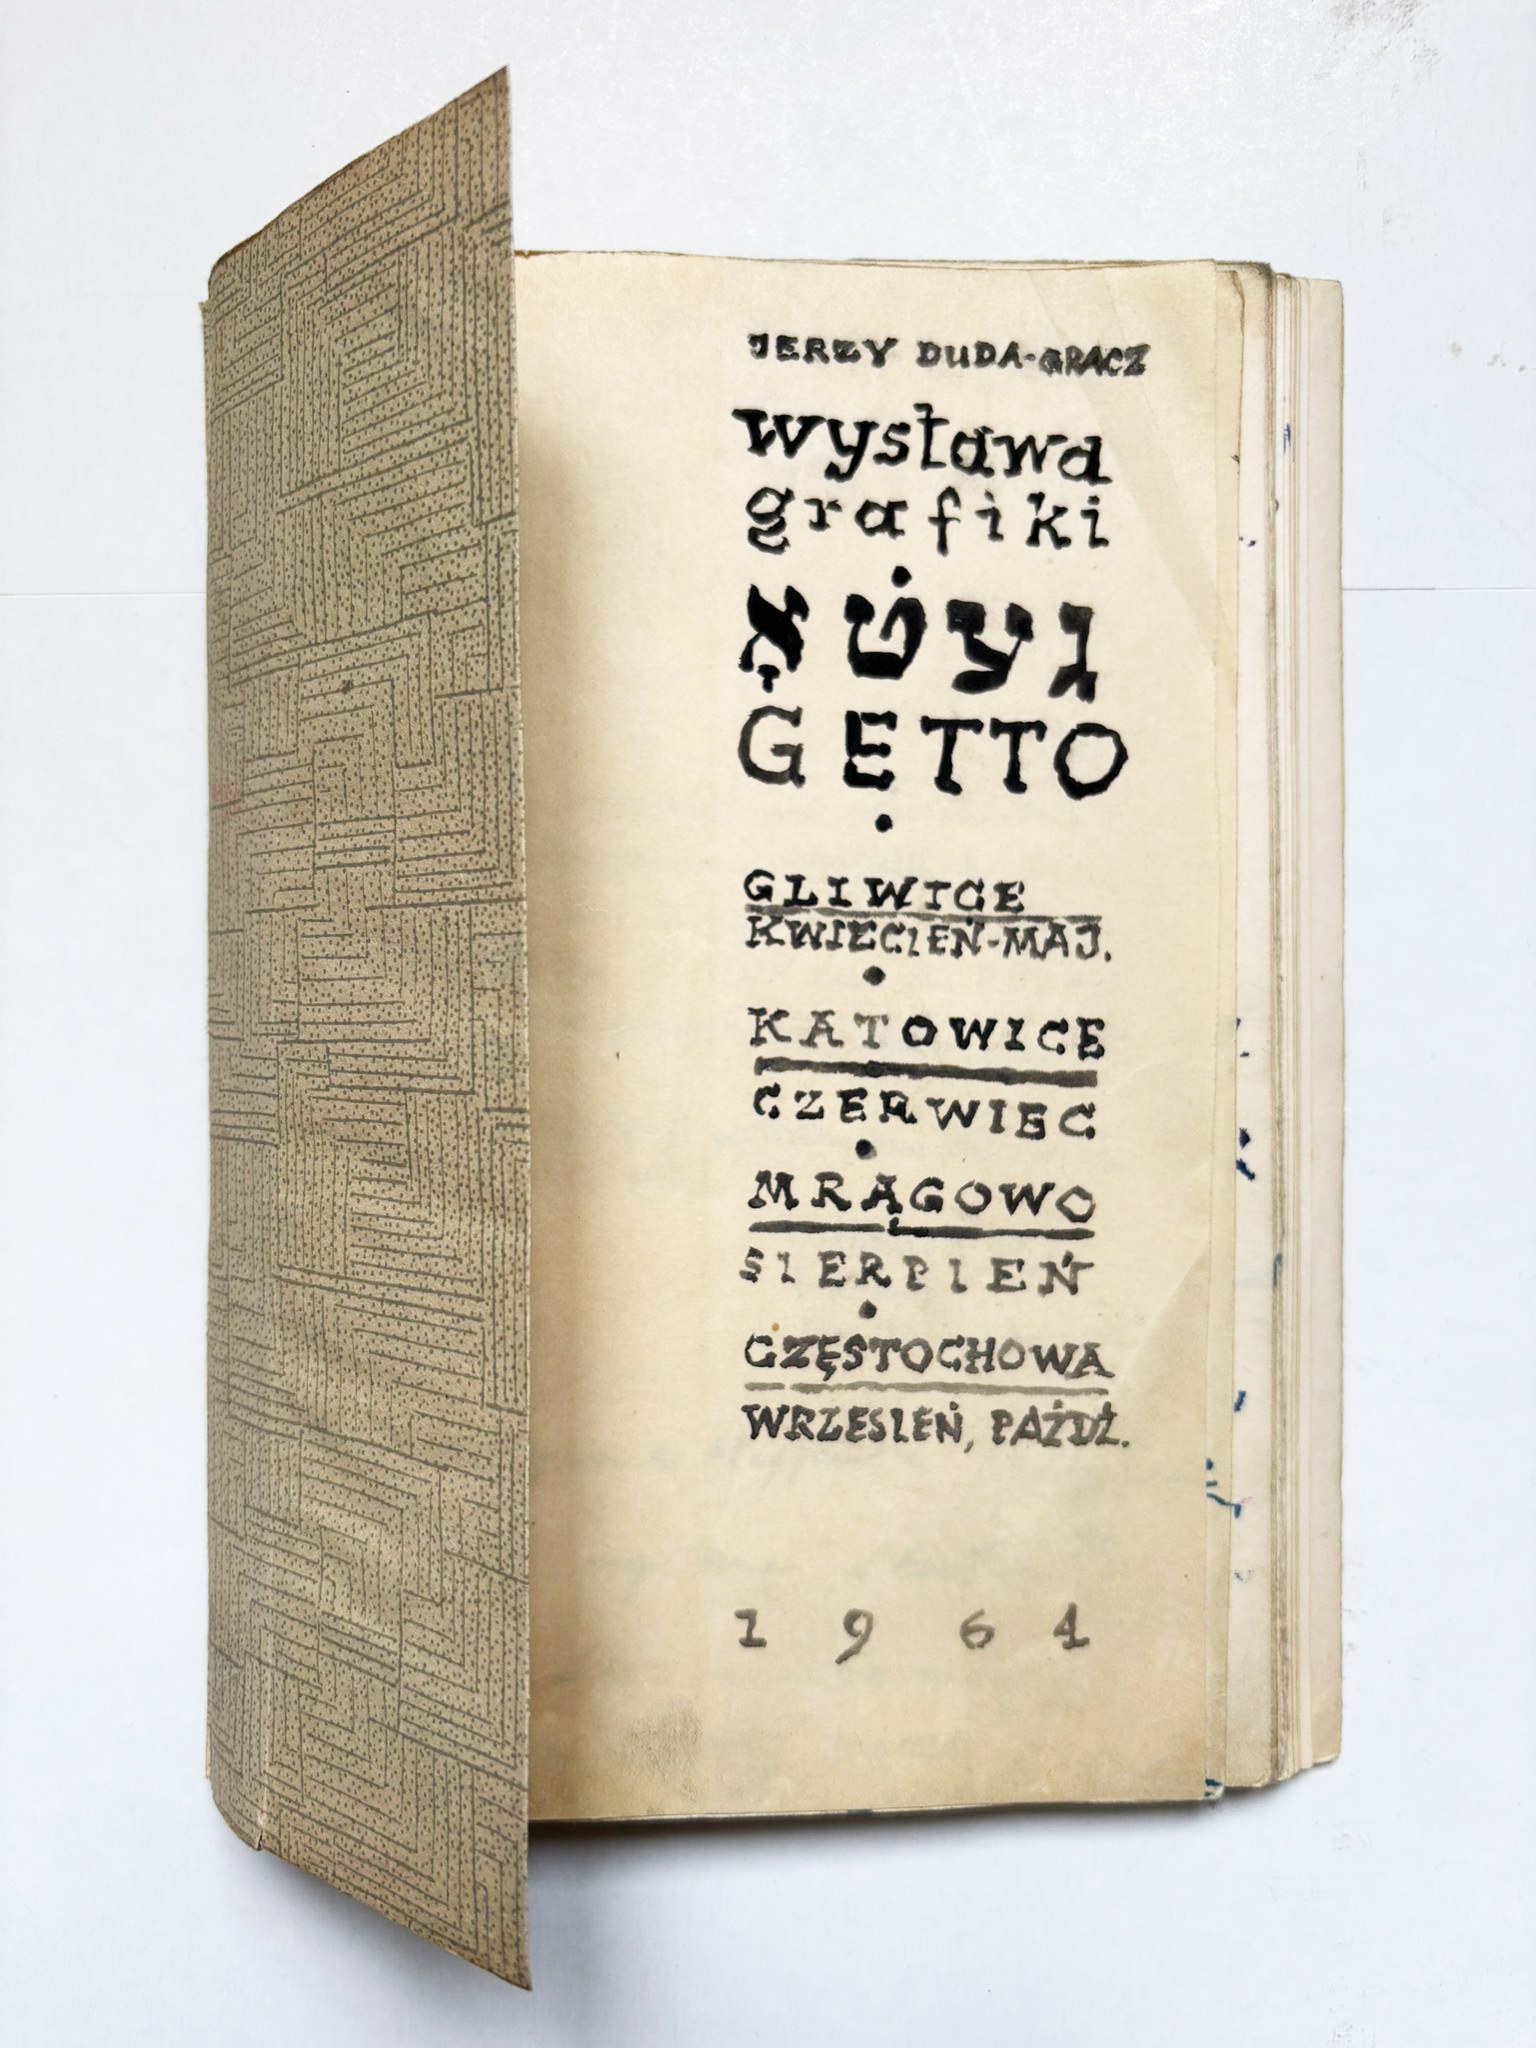 JERZY DUDA-GRACZ
wystawa
grafiki
געטאָ
GETTO
GLIWICE
KWIECIEŃ-MAJ.
KATOWICE
CZERWIEC
MRĄGOWO
SIERPIEŃ
CZĘSTOCHOWA
WRZESIEŃ, PAŹDŹ.
1964